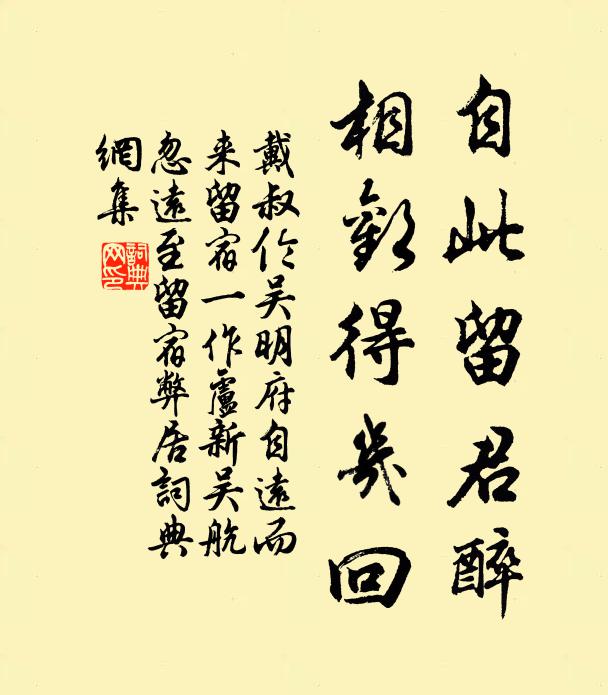 自此留君醉
相歡得幾回
戴叔伦吴明府自遠而
来留宿一作盧新吴航
忽遠至留宿弊居詞典
網集
詞典
网印